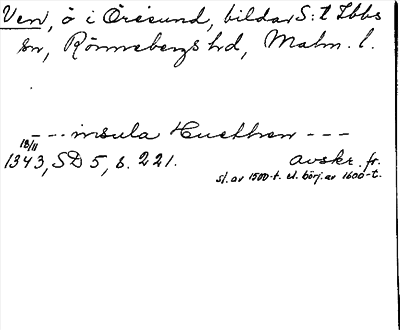 Ven, ö i Öresund, bildar S:t Ibbs
sn, Rönnebergs hd, Malm. l.
--- insula Huethwen ---
18/11
1343, SD 5, s. 221. avskr. fr.
sl. av 1500-t. el. börj. av 1600-t.